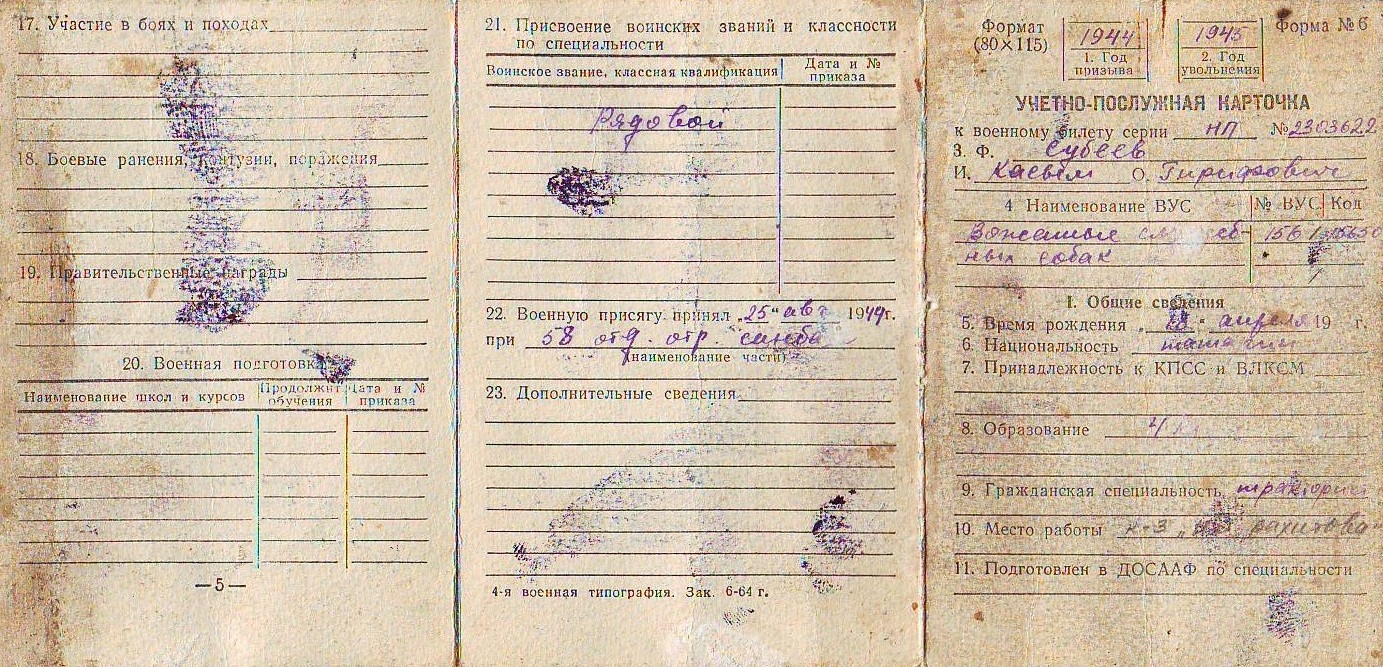 17. Участие в боях и походах
18. Боевые ранения, контузии, поражения
19. Правительственные награды
20. Военная подготовка
Наименование школ и курсов
Продолжит. обучения
Дата и № приказа
—5—
21. Присвоение воинских званий и классности
по специальности
Воинское звание, классная квалификация
Дата и № приказа
Рядовой
22. Военную присягу принял „25“ авг 1944г.
при 58 отд. отр.
(наименование части)
23. Дополнительные сведения
4-я военная типография. Зак. 6-64 г.
Формат
(80×115)
1944
1. Год
призыва
1945
2. Год
увольнения
Форма № 6
УЧЕТНО-ПОСЛУЖНАЯ КАРТОЧКА
к военному билету серии НП № 2303622
3. Ф. Субеев
И. Касым О.
4 Наименование ВУС
№ ВУС
Код
Вожатые служеб-
ных собак
156
I. Общие сведения
5. Время рождения „18“ апреля 19 г.
6. Национальность татарин
7. Принадлежность к КПСС и ВЛКСМ
8. Образование 4
9. Гражданская специальность тракторист
10. Место работы к-з
11. Подготовлен в ДОСААФ по специальности